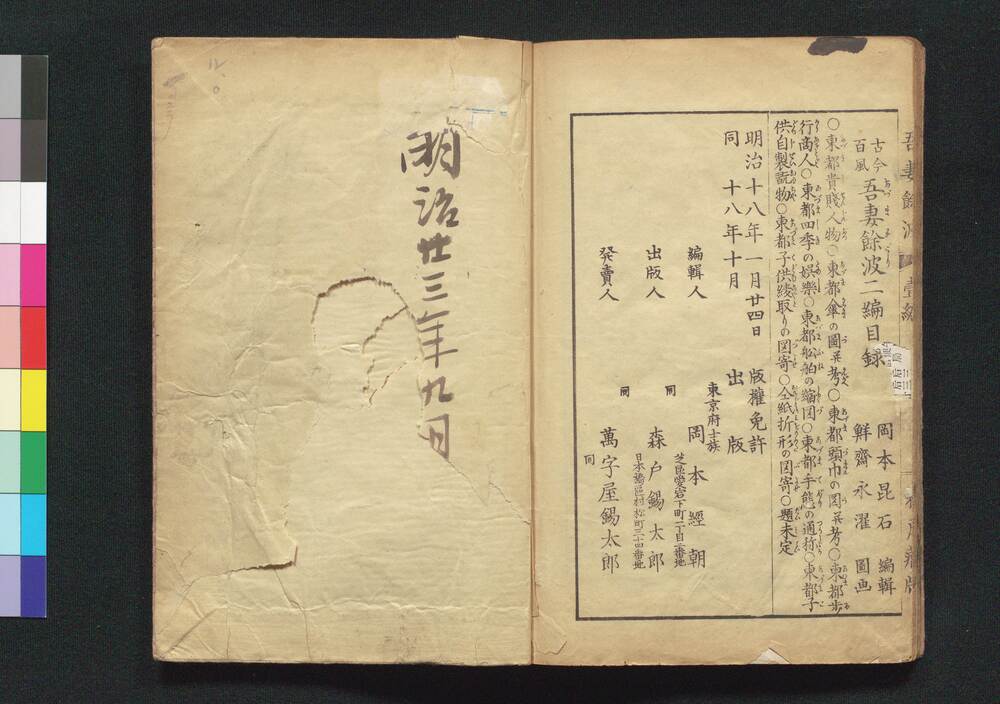 古今百風 吾妻餘波二編目録 岡本昆石 編輯
鮮齋永濯 圖画
○東都貴賤人物○東都傘の圖并考○東都頭巾の図并考○東都歩
行商人○東都四季の娯樂○東都船舶の縮図○東都手態の通称○東都子
供自製翫物○東都子供綾取りの図寄○仝紙折形の図寄○題未定
明治十八年一月廿四日 版權免許
同 十八年十月 出版
東京府士族
編輯人 岡本經朝
芝區愛宕下町二丁目二番地
出版人 同 森戸錫太郎
日本橋區村松町三十四番地
発賣人 同 萬字屋錫太郎
同
明治廿三年九月